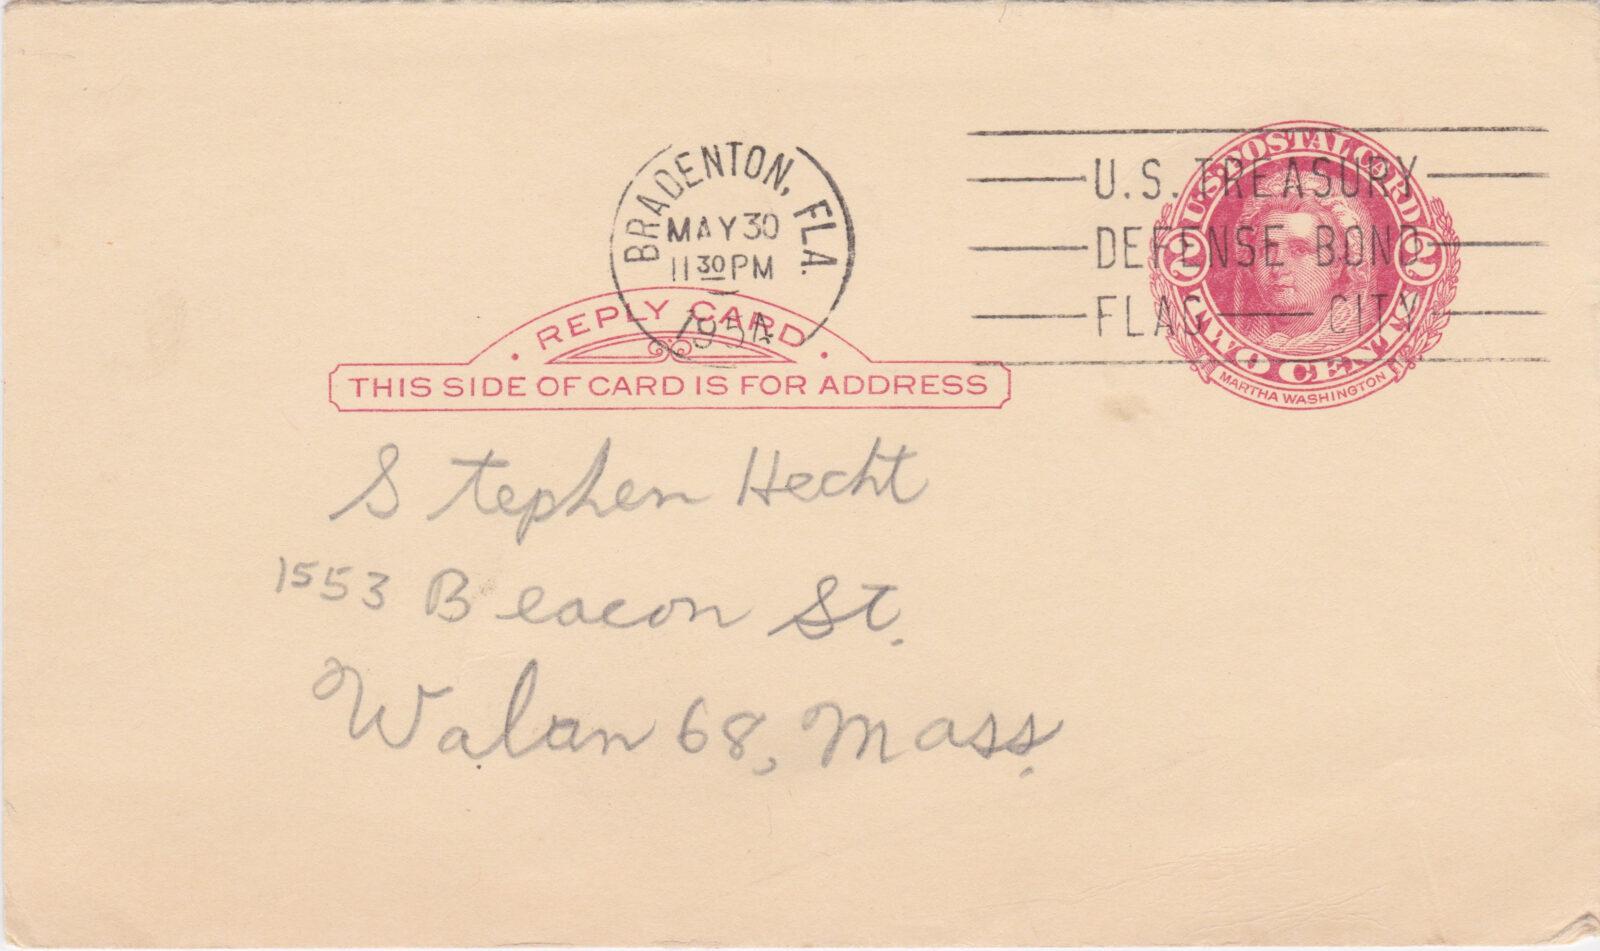 BRADENTON, FLA.
MAY 30
11 30 PM
1954
U.S. TREASURY
DEFENSE BOND
FLAG CITY
U.S. POSTAL CARD
2 2
TWO CENTS
MARTHA WASHINGTON
· REPLY CARD ·
THIS SIDE OF CARD IS FOR ADDRESS
Stephen Hecht
1553 Beacon St.
Walan 68, Mass.